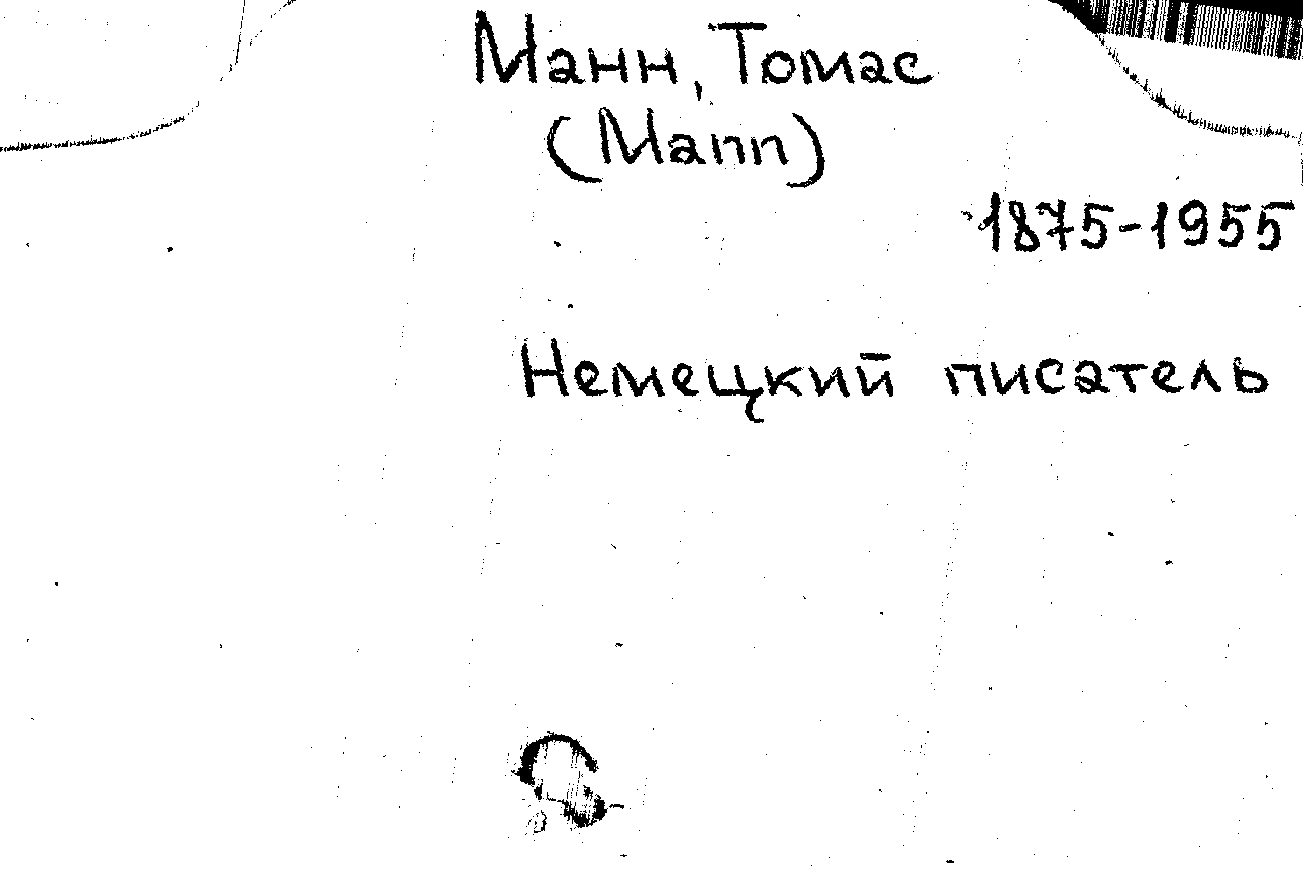 Манн, Томас
(Mann)
1875-1955
Немецкий писатель